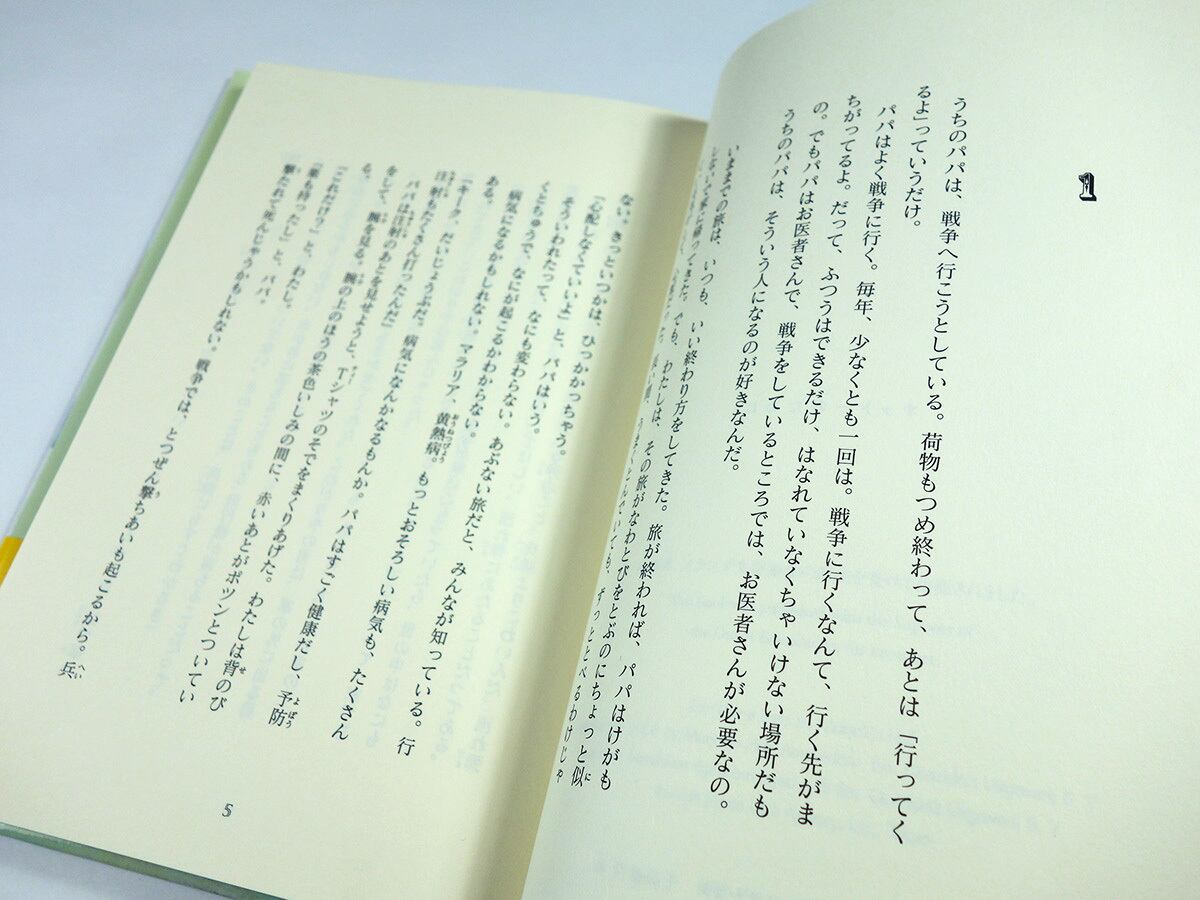 1
うちのパパは、戦争へ行こうとしている。荷物もつめ終わって、あとは「行ってく
るよ」っていうだけ。
パパはよく戦争に行く。毎年、少なくとも一回は。戦争に行くなんて、行く先がま
ちがってるよ。だって、ふつうはできるだけ、はなれていなくちゃいけない場所だも
の。でもパパはお医者さんで、戦争をしているところでは、お医者さんが必要なの。
うちのパパは、そういう人になるのが好きなんだ。
いままでの旅は、いつも、いい終わり方をしてきた。旅が終われば、パパはけがも
でも、わたしは、その旅がなわとびをとぶのにちょっと似
長い間、うまくとんでいても、ずっととべるわけじゃ
ない。きっといつかは、ひっかかっちゃう。
「心配しなくていいよ」と、パパはいう。
そういわれたって、なにも変わらない。あぶない旅だと、みんなが知っている。行
くとちゅうで、なにが起こるかわからない。
病気になるかもしれない。マラリア、黄熱病。もっとおそろしい病気も、たくさん
ある。
「キーク、だいじょうぶだ。病気になんかなるもんか。パパはすごく健康だし、予防
注射もたくさん打ったんだ」
パパは注射のあとを見せようと、Tシャツのそでをまくりあげた。わたしは背のび
をして、腕を見る。腕の上のほうの茶色いしみの間に、赤いあとがポツンとついてい
る。
「これだけ?」と、わたし。
「薬も持ったし」と、パパ。
撃たれて死んじゃうかもしれない。戦争では、とつぜん撃ちあいも起こるから。兵
5